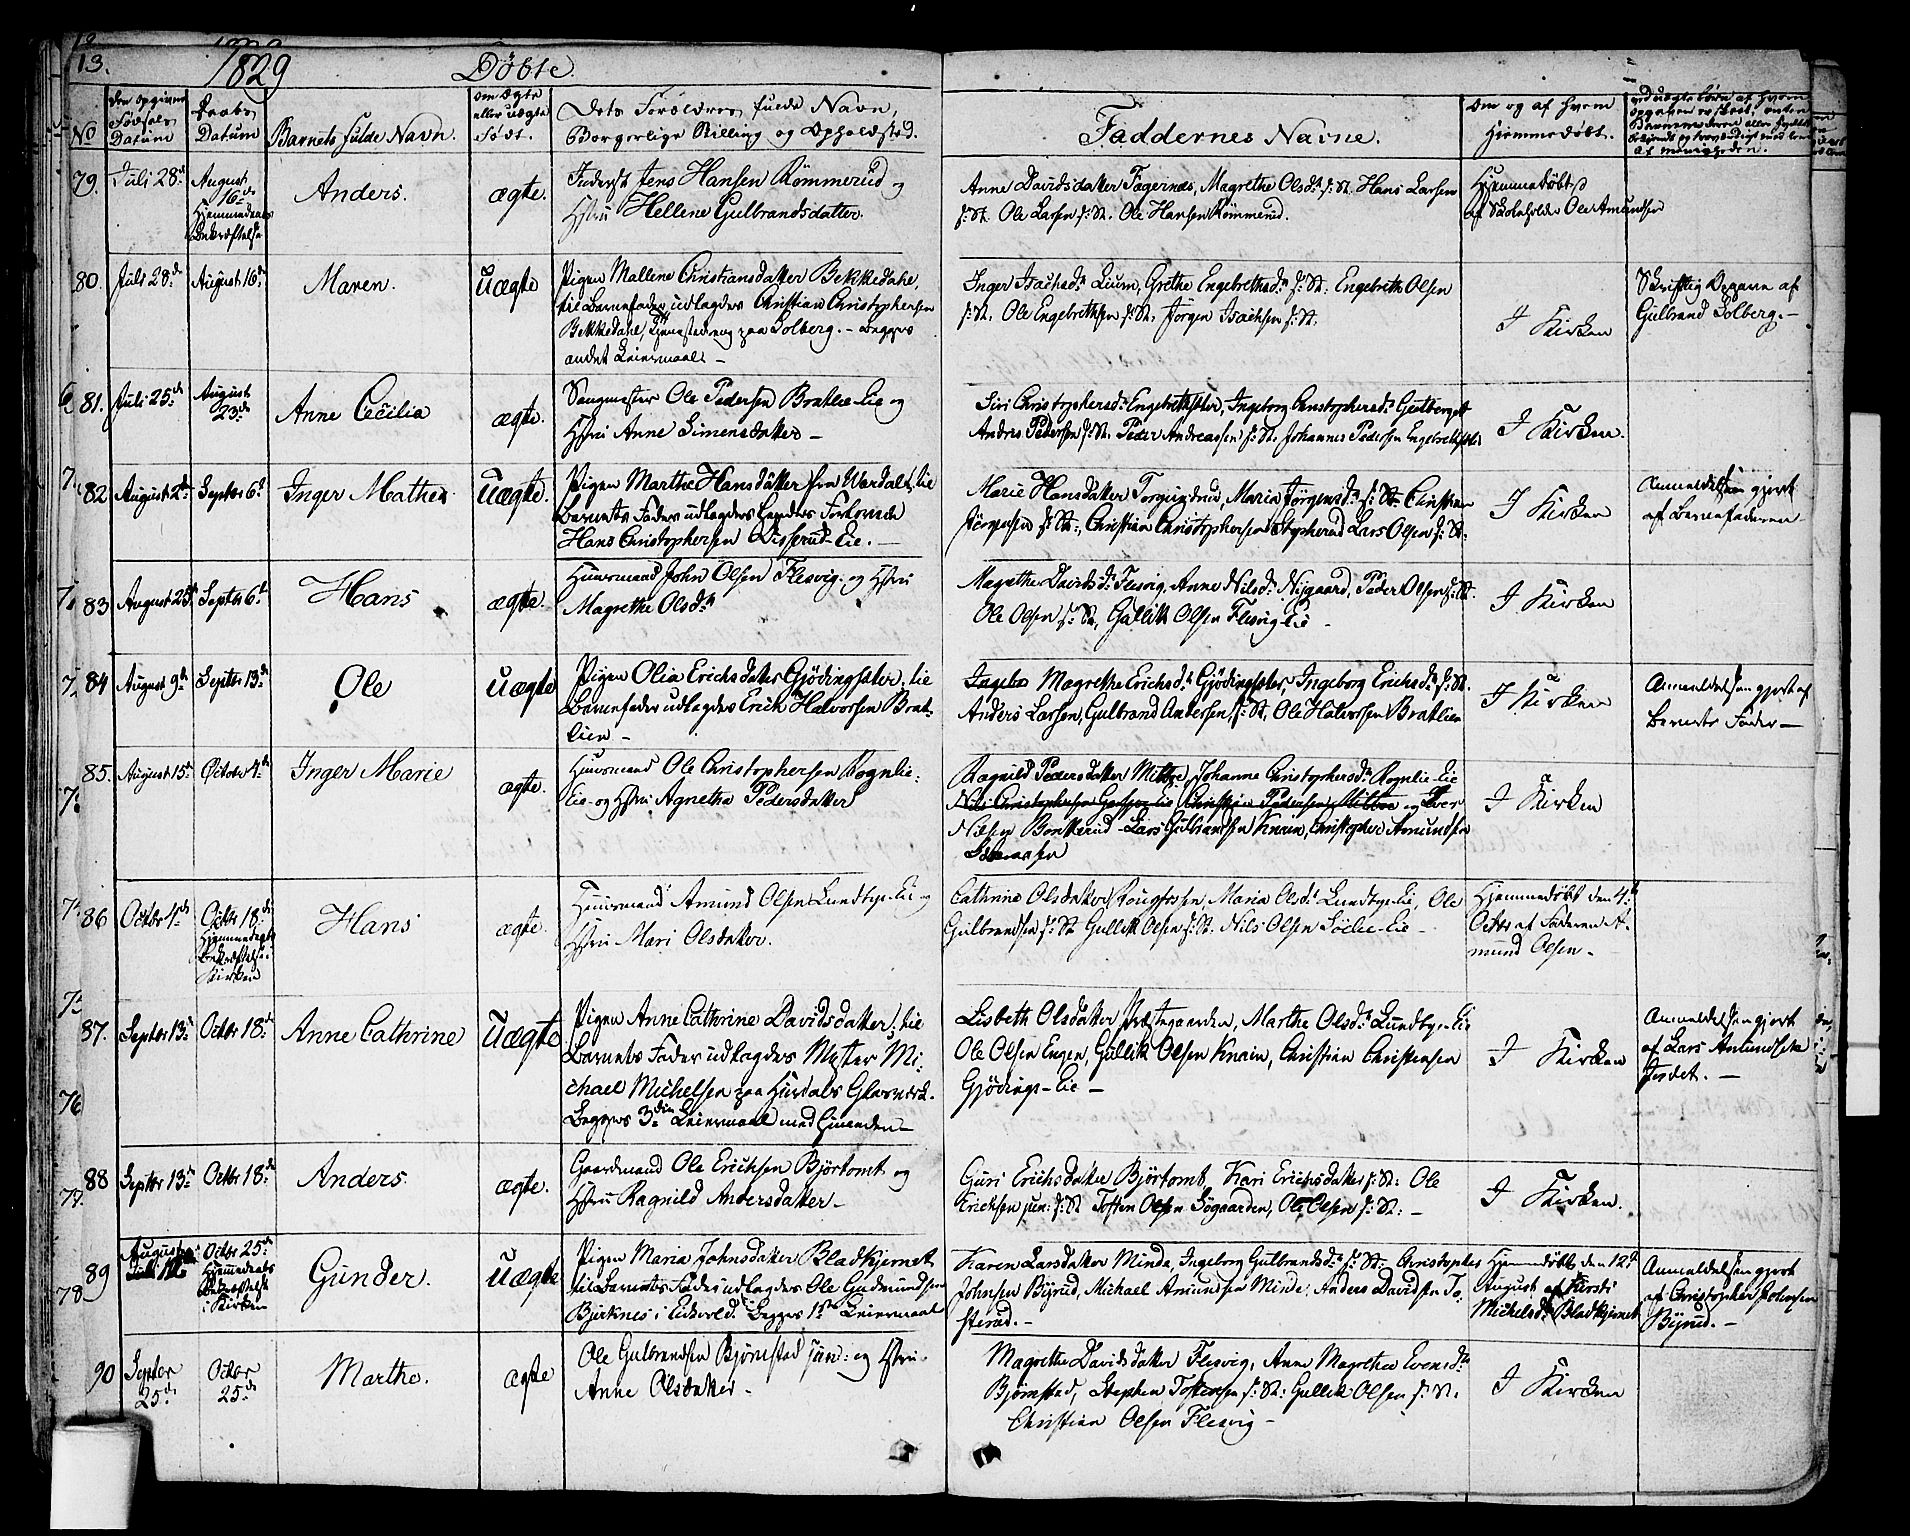 13.
1829
Döbte
No
den opgivne Födsels Datum
Daabs Datum
Barnets fulde Navn.
om ægte eller uægte Födt.
Dets Forældres fulde Navn, Borgerlige Stilling og Opholdssted.
Faddernes Navne.
Om og af hvem Hjemmedöbt.
79. Juli 28de August 16de Hjemmedaabs Bekræftelse
Anders.
ægte.
Inderst Jens Hansen Römmerud og
Hstru Hellene Gulbrandsdatter.
Anne Davidsdatter Fagernæs, Magrethe Olsdr. s: St. Hans Larsen
s: St. Ole Larsen s: St. Ole Hansen Römmerud.
Hjemmedöbt
af Skoleholder Ole Amundsen
80. Juli 28de August 16de
Maren.
Uægte
Pigen Mallene Christiansdatter Bekkedahl,
til Barnefader udlagdes Christian Christophersen
Bekkedahl, Tjenestedreng paa Solberg. – Begges
andet Leiermaal. –
Inger Isachsdr. Lium, Grethe Engebrethsdr. s: St: Engebreth Olsen
s: St. Ole Engebrethsen s: St. Jörgen Isachsen s: St.
I Kirken
Skriftlig Opgave af
Gulbrand Solberg. –
81. Juli 25de August 23de
Anne Cecilia
ægte.
Saugmester Ole Pedersen Bratlie-Eie og
Hstru Anne Simensdatter –
Siri Christophersdr. Engebrethsæter, Ingeborg Christophersdr.
Andres Pedersen s: St. Peder Andreassen s: St. Johannes Pedersen
I Kirken.
82 August 2de Septbr 6te
Inger Mathea
Uægte.
Pigen Marthe Hansdatter fra Wardals Eie
Barnets Fader udlagdes hendes Forlovede
Hans Christophersen Disserud-Eie. –
Marie Hansdatter, Maria Jörgensdr. s: St. Christian
Jörgensen s: St:, Christian Christophersen, Lars Olsen s: St:
I Kirken
Anmeldelsen gjort
af Barnefaderen
83 August 25de Septbr 6te
Hans
ægte.
Huusmand John Olsen Flesvig. og Hstru
Magrethe Olsdr.
Magrethe Davidsdr. Flesvig, Anne Nilsdr. Nijgaard, Peder Olsen s: St.
Ole Olsen s: St, Gullik Olsen Flesvig-Eie –
I Kirken
84 August 9de Septbr 13de
Ole
Uægte
Pigen Olia Erichsdatter Gjödingsæter, til
Barnefader udlagdes Erich Halvorsen Brat-
lien –
Magrethe Erichsdr. Gjödingsæter, Ingeborg Erichsdr. s: St.
Anders Larsen, Gulbrand Andersen s: St, Ole Halvorsen Bratlien
I Kirken
Anmeldelsen gjort af
Barnets Fader –
85. August 15de Octobr 4de
Inger Marie
ægte.
Huusmand Ole Christophersen Rognlie-
Eie og Hstru Agnethe Pedersdatter
Ragnild Pedersdatter, Johanne Christophersdr. Rognlie-Eie
Nils Christophersen, Christian Pedersen og Iver
Nilsen, Lars Gulbrandsen Knain, Christopher Amundsen
I Kirken
86 Octbr 4de Octbr 18de Hjemmedaabs Bekræftelse i Kirken
Hans
ægte.
Huusmand Amund Olsen Lundbye-Eie og
Hstru Mari Olsdatter.
Cathrine Olsdatter, Maria Olsdr. Lundbye-Eie, Ole
Gulbrandsen s: St Gullik Olsen s: St. Nils Olsen Sölie-Eie –
Hjemmedöbt den 4de
Octbr af Faderen A-
mund Olsen. –
87. Septbr 13de Octbr 18de
Anne Cathrine
Uægte
Pigen Anne Cathrine Davidsdatter, til
Barnets Fader udlagdes Mester Mi-
chael Michelsen paa Hurdals Glasværk.
Begges 3die Leiermaal med hinanden –
Lisbeth Olsdatter Præstegaarden, Marthe Olsdr. Lundbye-Eie
Ole Olsen Engen, Gullik Olsen Knain, Christian Christensen
Gjödings-Eie –
I Kirken
Anmeldelsen gjort
af Lars Amundsen
88 Septbr 13de Octbr 18de
Anders
ægte.
Gaardmand Ole Erichsen Björtomt og
Hstru Ragnild Andersdatter –
Guri Erichsdatter Björtomt, Kari Erichsdatter s: St: Ole
Erichsen jun: s: St Tosten Olsen Sögaarden, Ole Olsen s: St: –
I Kirken.
89 August 12 Octbr 25de Hjemmedaabs Bekræftelse i Kirken
Gunder.
Uægte
Pigen Maria Johnsdatter Bladkjernet
til Barnets Fader udlagdes Ole Gudmundsen
Björknes i Eidsvold. Begges 1ste Leiermaal
Karen Larsdatter Minde, Ingeborg Gulbrandsdr. s: St: Christopher
Johnsen Bijrud, Michael Amundsen Minde, Anders Davidsen To-
sterud. –
Hjemmedöbt den 12te
August af Kirsti
Michelsdr. Bladkjernet
Anmeldelsen gjort
af Christopher Johnsen
Bijrud. –
90 Septbr 25de Octbr 25de
Marthe.
ægte
Ole Gulbrandsen Björnstad jun: og Hstru
Anne Olsdatter –
Magrethe Davidsdatter Flesvig, Anne Magrethe Evensdr.
Björnstad, Stephen Tostensen s: St: Gullik Olsen s: St.
Christian Olsen Flesvig –
I Kirken
76
77.
78